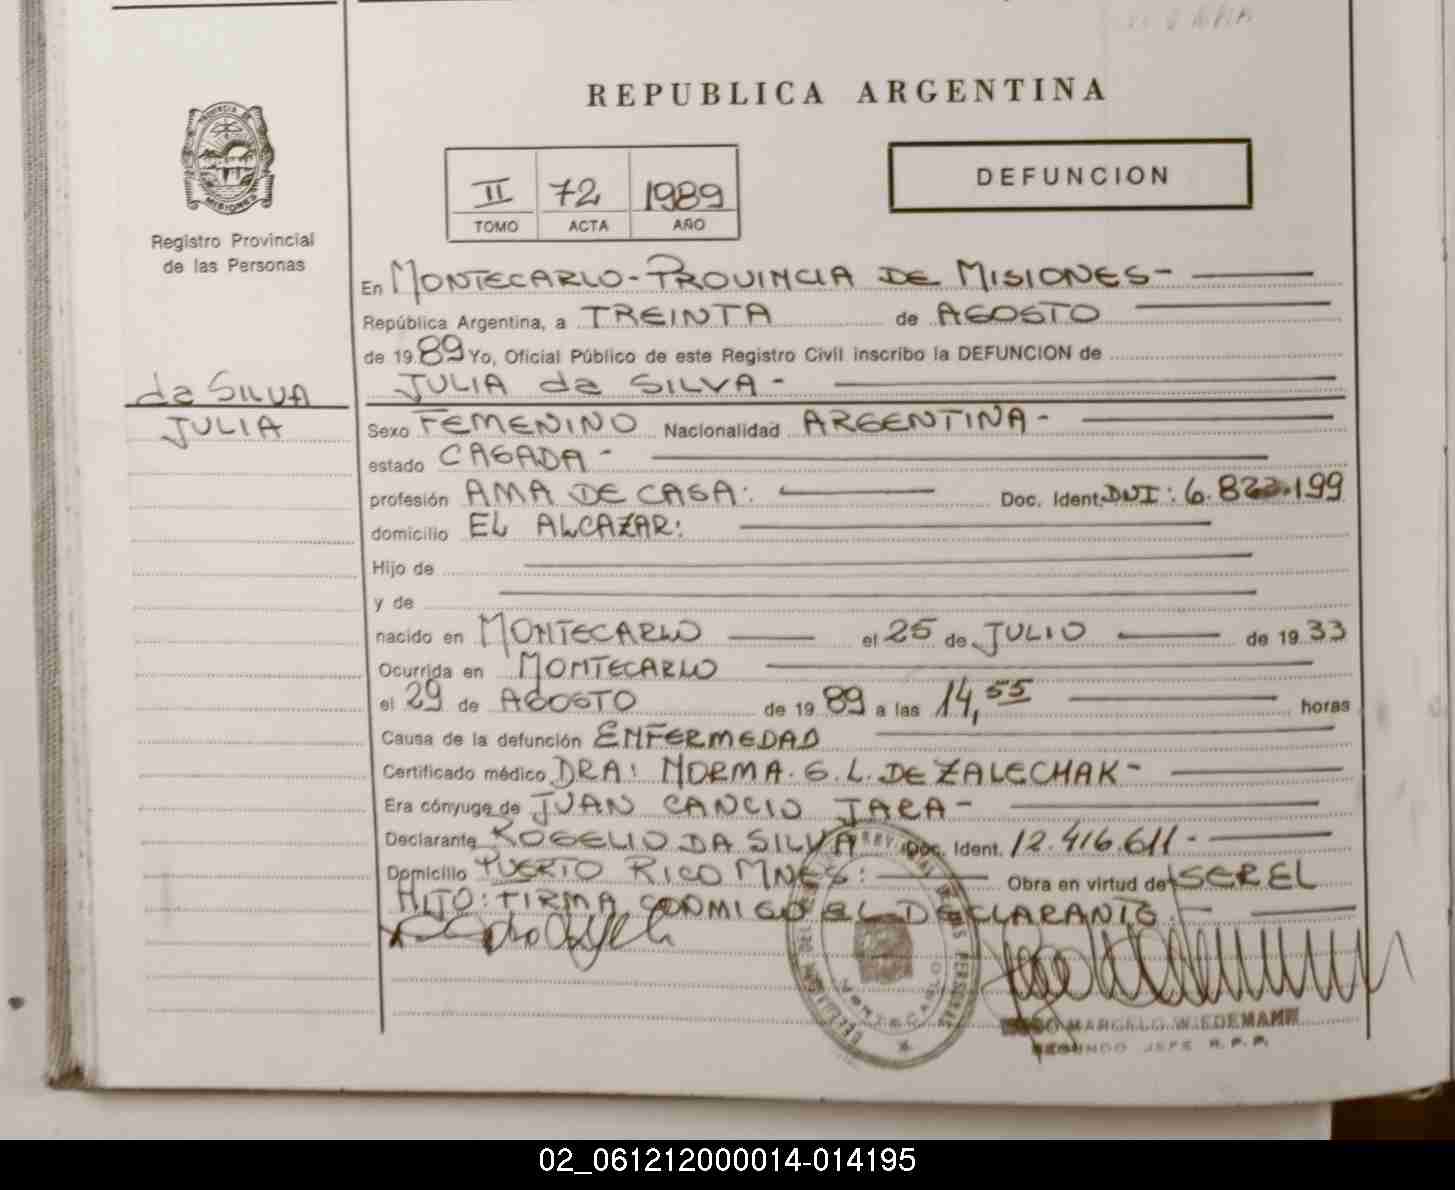 REPUBLICA ARGENTINA
II 72 1989
TOMO ACTA AÑO
DEFUNCION
Registro Provincial
de las Personas
da SILVA
JULIA
En MONTECARLO-PROVINCIA DE MISIONES-
República Argentina, a TREINTA de AGOSTO
de 19 89 Yo, Oficial Público de este Registro Civil inscribo la DEFUNCION de
JULIA da SILVA-
Sexo FEMENINO Nacionalidad ARGENTINA-
estado CASADA-
profesión AMA DE CASA: Doc. Ident. DNI: 6.822.199
domicilio EL ALCAZAR:
Hijo de
y de
nacido en MONTECARLO el 25 de JULIO de 19 33
Ocurrida en MONTECARLO
el 29 de AGOSTO de 19 89 a las 14,55 horas
Causa de la defunción ENFERMEDAD
Certificado médico DRA: NORMA. G. L. DE ZALECHAK-
Era cónyuge de JUAN CANCIO JARA-
Declarante ROGELIO DA SILVA Doc. Ident. 12.416.611-
Domicilio PUERTO RICO MNES: Obra en virtud de SER EL
HIJO: FIRMA CONMIGO EL DECLARANTE.
MONTECARLO
MARCELO WIEDEMANN
SEGUNDO JEFE R. P. P.
02_061212000014-014195